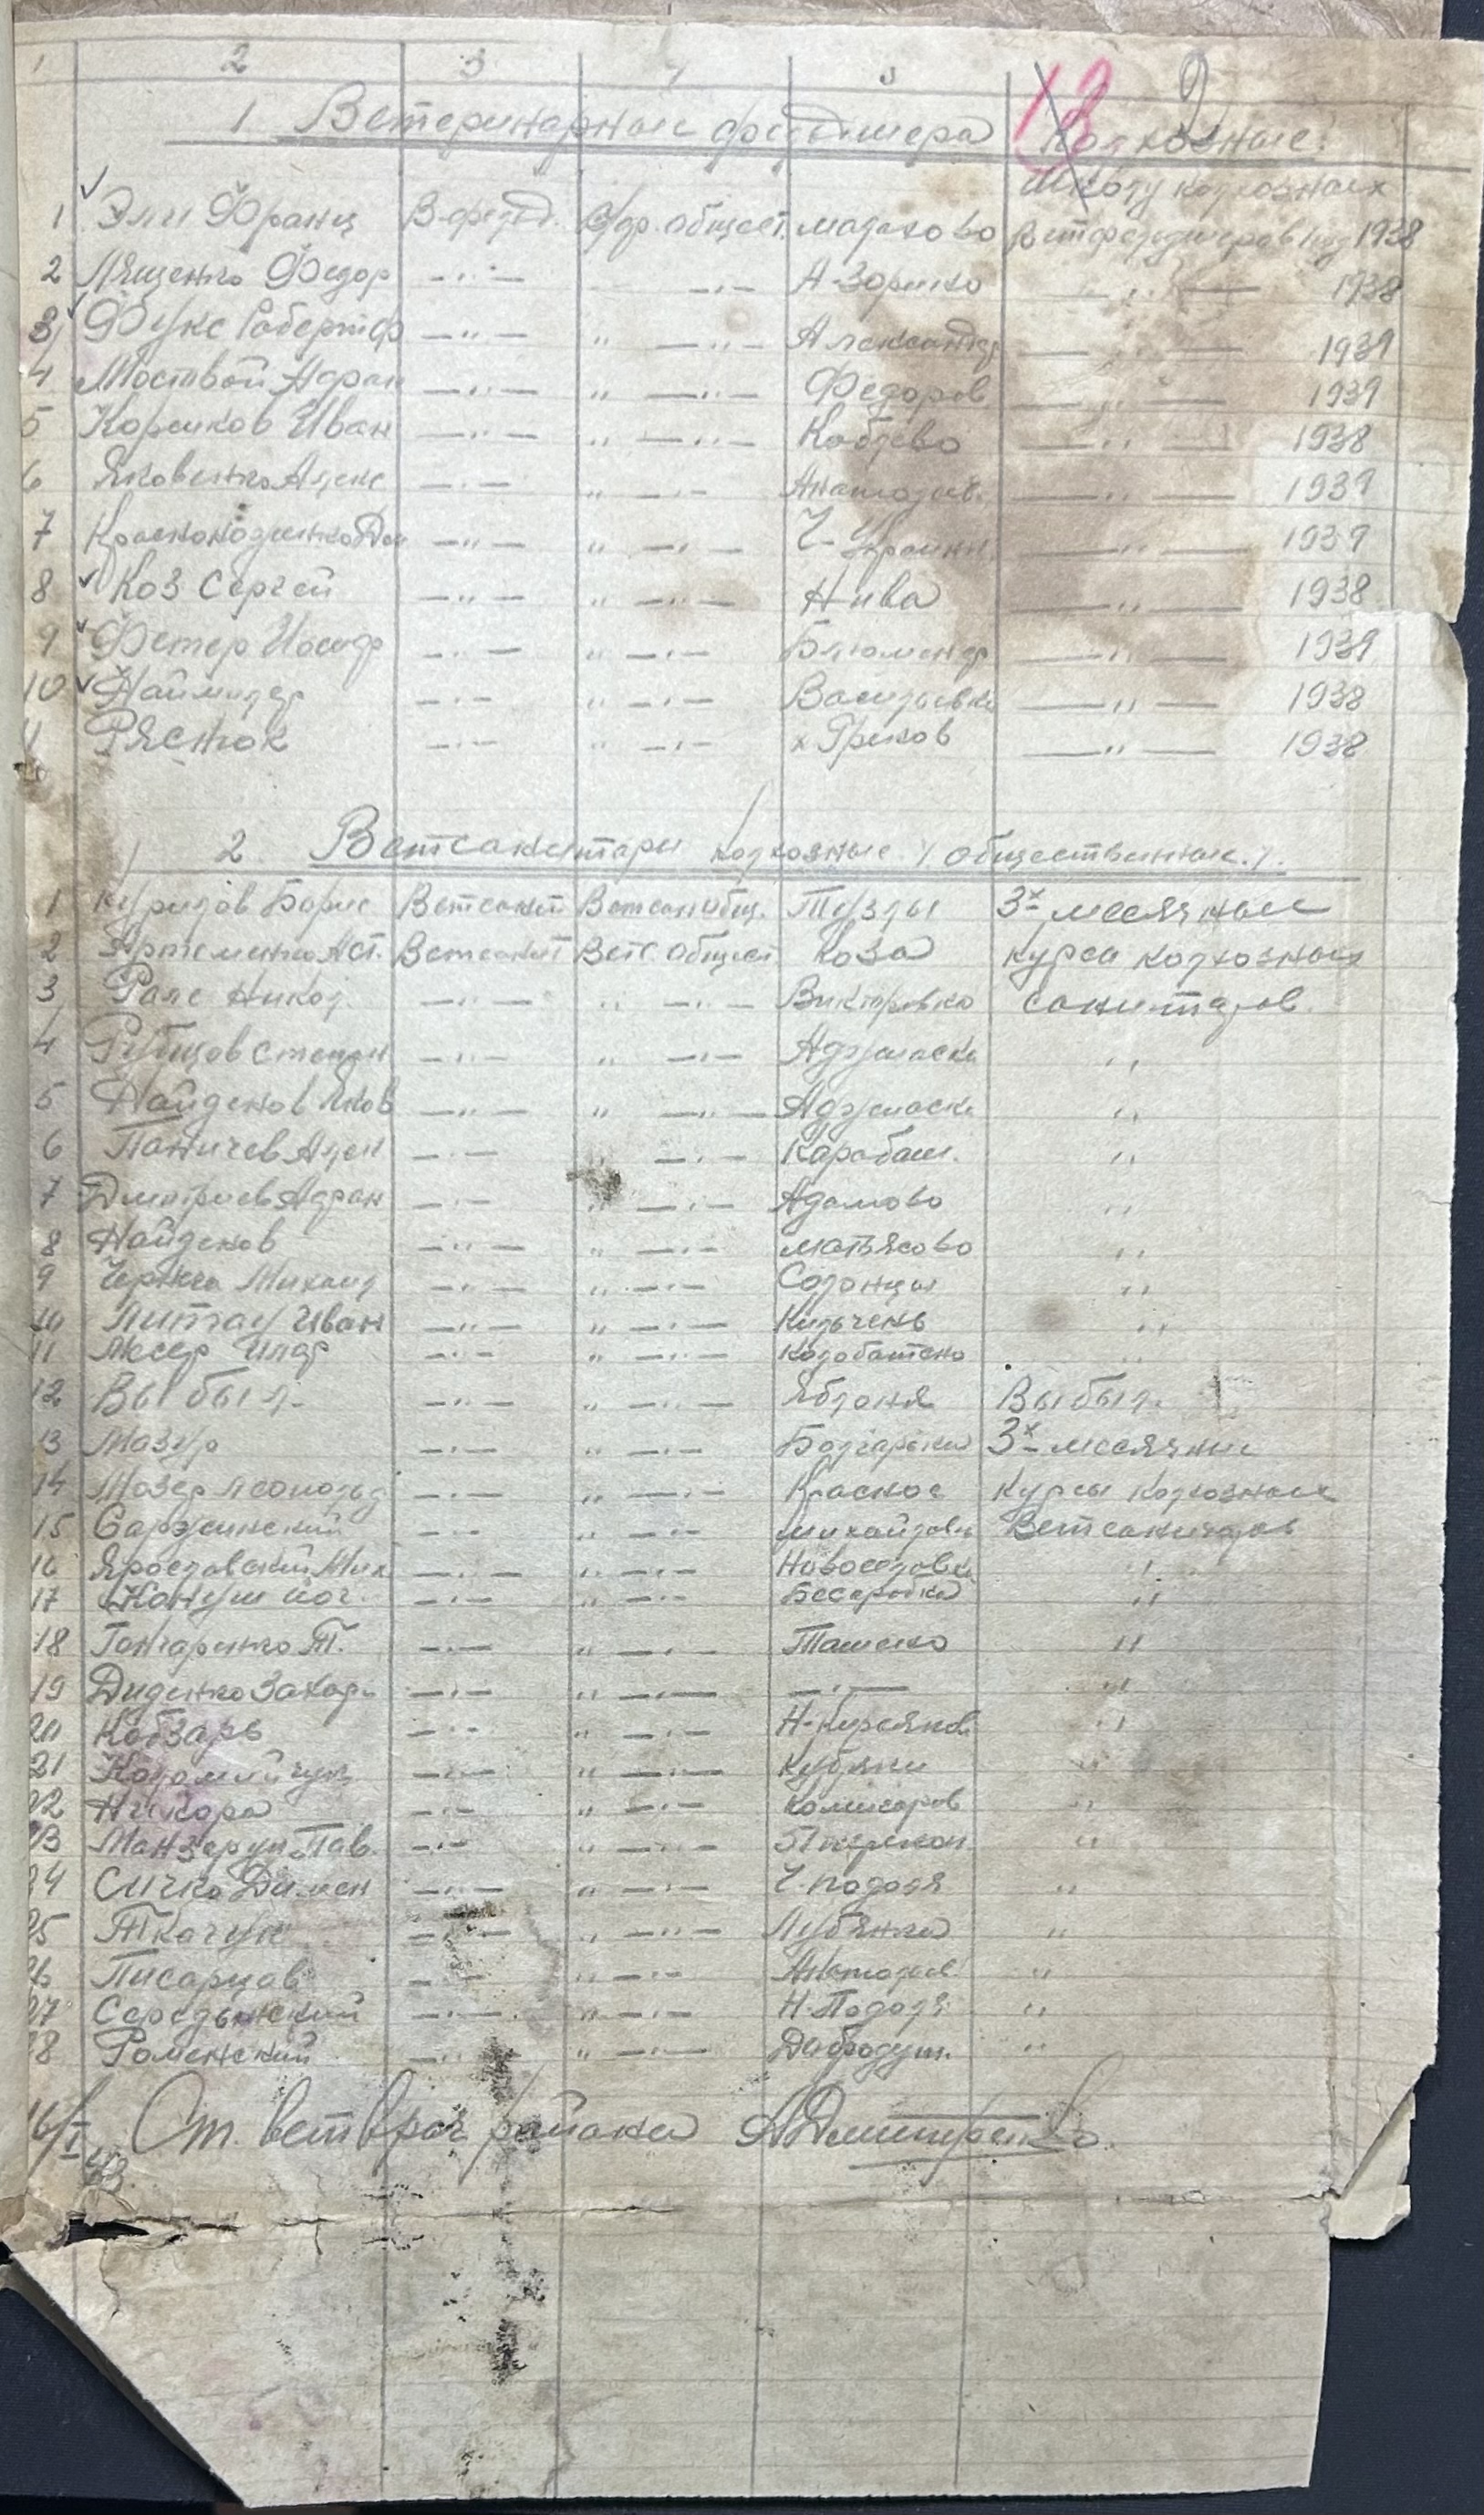 1 2 3 4 5
13 2
1 Ветеринарные фельдшера колхозные.
Школу колхозных
1 Эли Франц В-фельд. Фдр. общест. малахово ветфельдшеров 1938
2 Лященко Федор —"— —"— А-Зорино —"— 1938
3 Фукс Роберт —"— " —"— Александр —"— 1939
4 Мостовой Адрам —"— " —"— Федоров —"— 1939
5 Корчиков Иван —"— " —"— Коблево —"— 1938
6 Яковенко Алекс —"— " —"— Анатольев. —"— 1939
7 —"— " —"— Ч-Украинк. —"— 1939
8 Коз Сергей —"— " —"— Нива —"— 1938
9 Фетер Иосиф —"— " —"— Блюменф —"— 1939
10 Наймиллер —"— " —"— Васильевка —"— 1938
11 Ряснок —"— " —"— х Греков —"— 1938
2 Ветсанитары колхозные /общественные/.
1 Курилов Борис Ветсанит Ветсан общ. Тузлы 3х месячные
2 Артеменко Аст. Ветсанит Ветс. общест Коза курсы колхозных
3 Ралс Никол. —"— " —"— Викторовка санитаров.
4 Рубцов Степан —"— " —"— Аджиаска "
5 Найденов Яков —"— " —"— Аджиаска "
6 Паничев Алек —"— " —"— Карабаш. "
7 Дмитриев Адрам —"— " —"— Адамово "
8 Найденов —"— " —"— матьясово "
9 Черныга Михаил —"— " —"— Солонцы "
10 Литтау Иван —"— " —"— Кульчень "
11 Аксер —"— " —"— Колобатино "
12 Выбыл. —"— " —"— Яблоня Выбыл.
13 Мазур —"— " —"— Болгарка 3х месячные
14 Мозер Леопольд —"— " —"— Красное курсы колхозных
15 Саржинский —"— " —"— Михайловк Ветсанитаров
16 Ярославский Мих —"— " —"— Новоселовка "
17 —"— " —"— "
18 Гончаренко Т. —"— " —"— Ташино "
19 Диденко Захар. —"— " —"— —"— "
20 Кобзарь —"— " —"— Н-Киряков "
21 Коломийчук —"— " —"— Кубряки "
22 —"— " —"— Комисаров "
23 Манзерук Пав. —"— " —"— "
24 Сичко Димен —"— " —"— Ч. подоля "
25 Ткачук —"— " —"— Лубянка "
26 Писарцов —"— " —"— Анатольев. "
27 Середынский —"— " —"— Н-Подоля "
28 Роменский —"— " —"— Добродуш. "
16/I 43 Ст. ветврач района АДмитренко.